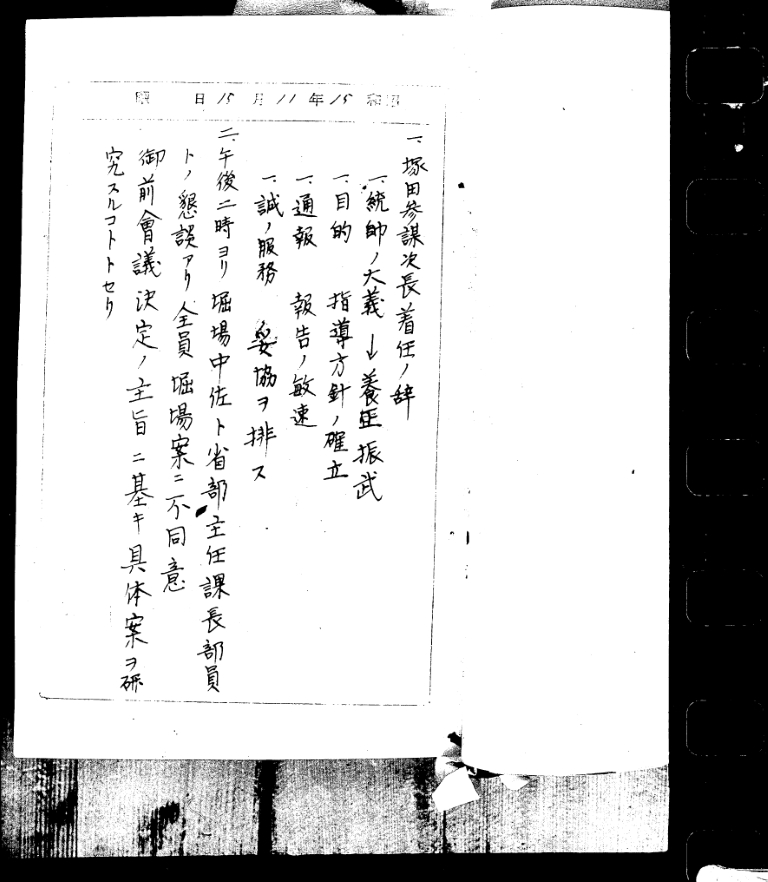 昭和15年11月15日
一、塚田參謀次長着任ノ辞
一、統帥ノ大義 → 養正振武
一、目的 指導方針ノ確立
一、通報 報告ノ敏速
一、誠ノ服務 妥協ヲ排ス
二、午後二時ヨリ堀場中佐ト省部主任課長部員
トノ懇談アリ全員堀場案ニ不同意
御前會議決定ノ主旨ニ基キ具体案ヲ研
究スルコトトセリ